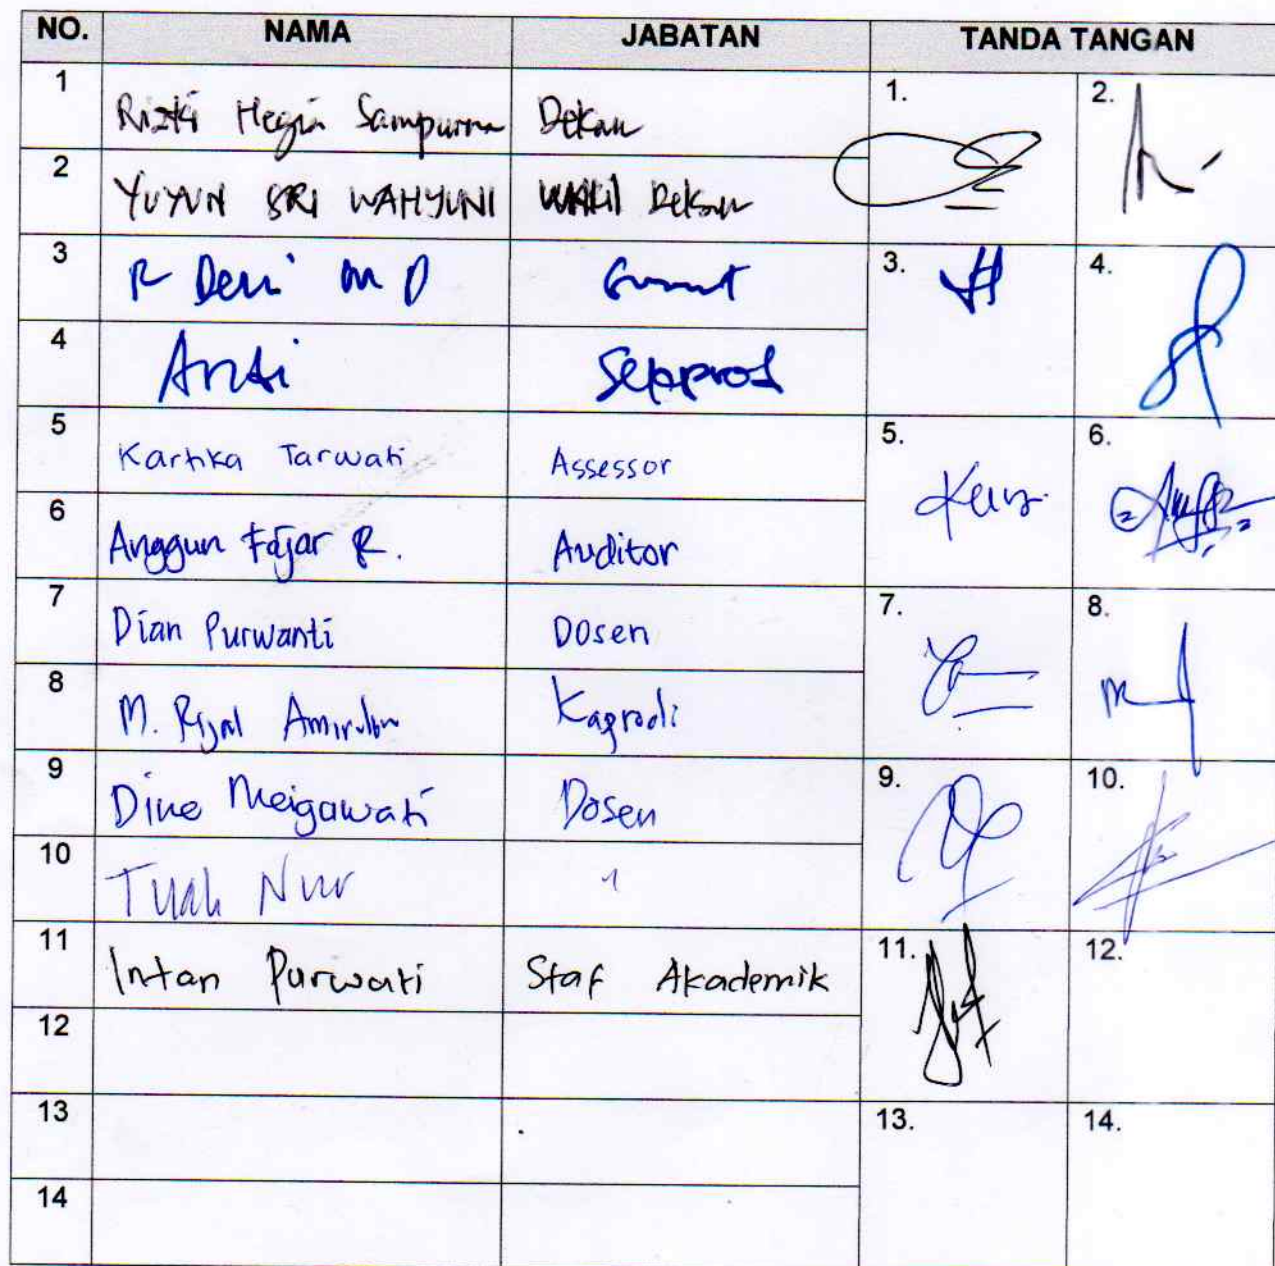 NO. NAMA JABATAN TANDA TANGAN
1 Rizki Hegia Sampurna Dekan 1. 2.
2 YUYUN SRI WAHYUNI WAKIL Dekan
3 R Deni M D 3. 4.
4
5 Kartika Tarwati Assessor 5. 6.
6 Anggun Fajar R. Auditor
7 Dian Purwanti Dosen 7. 8.
8 M. Rijal Amirulloh Kaprodi
9 Dine Meigawati Dosen 9. 10.
10 Tuah Nur "
11 Intan Purwati Staf Akademik 11. 12.
12
13 13. 14.
14